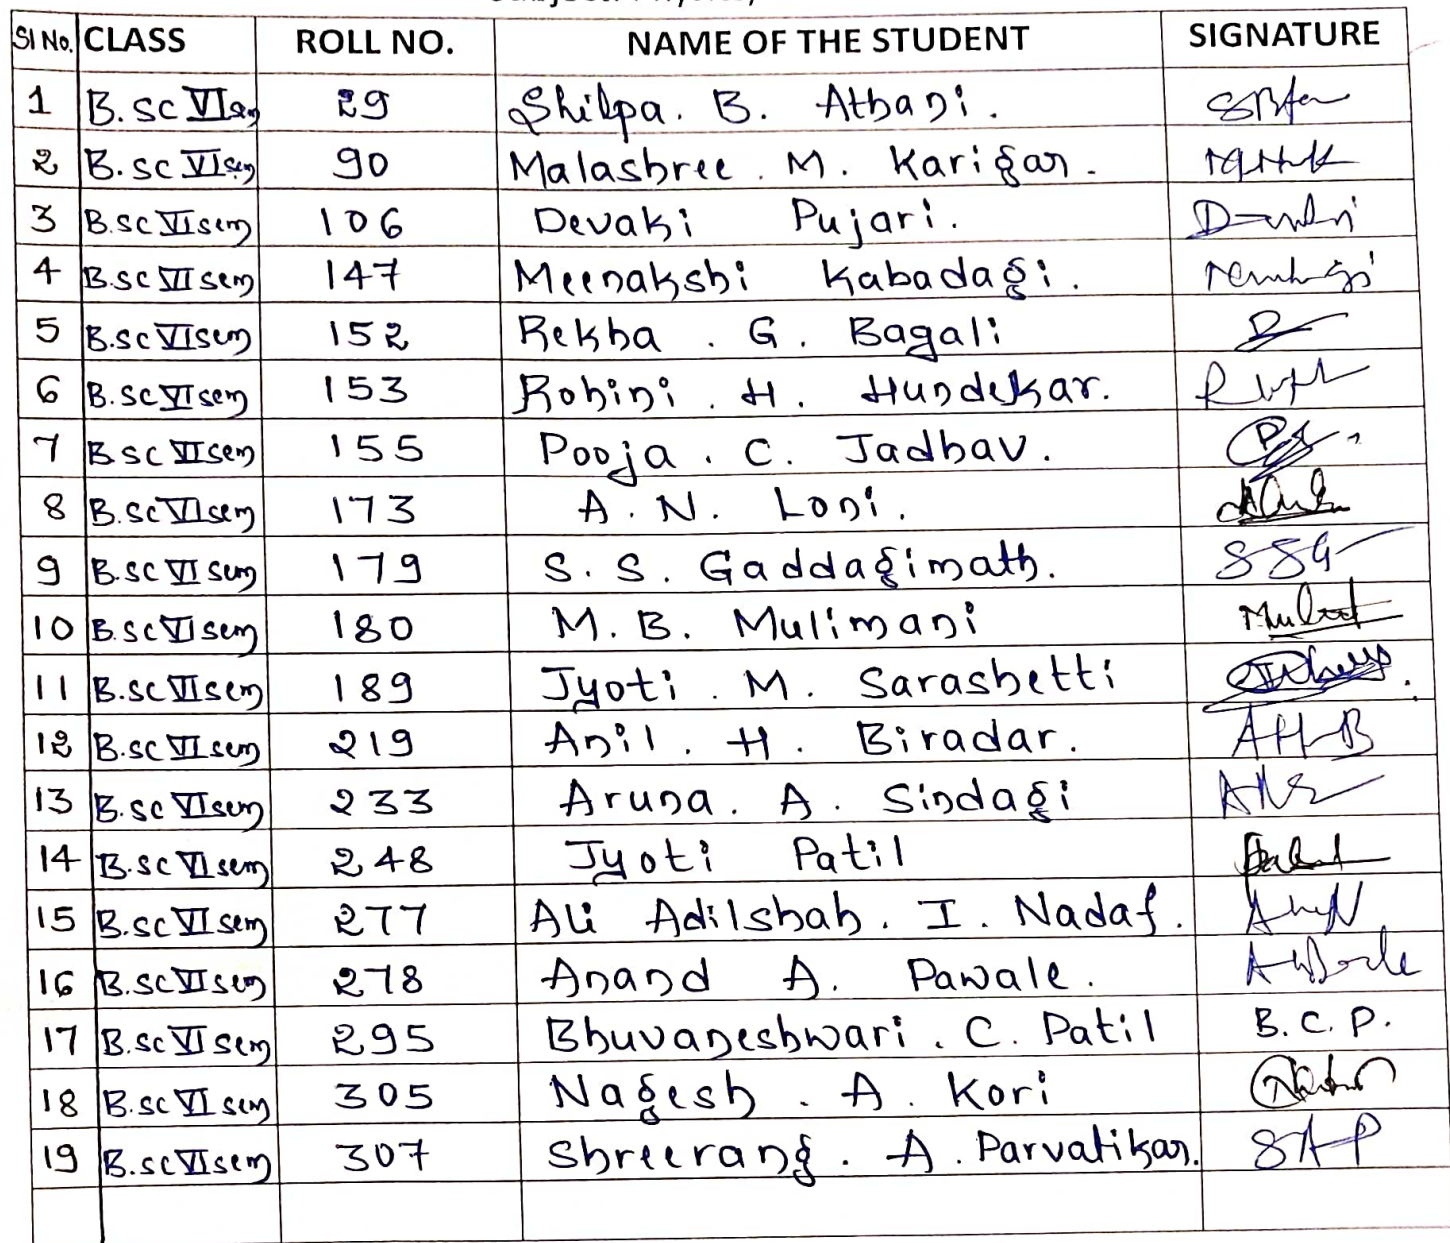 SI No. CLASS ROLL NO. NAME OF THE STUDENT SIGNATURE
1 B.sc VI sem 29 Shilpa. B. Athani.
2 B.sc VI sem 90 Malashree. M. Karigar.
3 B.sc VI sem 106 Devaki Pujari.
4 B.sc VI sem 147 Meenakshi Kabadagi.
5 B.sc VI sem 152 Rekha. G. Bagali
6 B.sc VI sem 153 Rohini. H. Hundekar.
7 B.sc VI sem 155 Pooja. C. Jadhav.
8 B.sc VI sem 173 A. N. Loni.
9 B.sc VI sem 179 S. S. Gaddagimath. SSG
10 B.sc VI sem 180 M. B. Mulimani
11 B.sc VI sem 189 Jyoti. M. Sarashetti
12 B.sc VI sem 219 Anil. H. Biradar. AHB
13 B.sc VI sem 233 Aruna. A. Sindagi
14 B.sc VI sem 248 Jyoti Patil
15 B.sc VI sem 277 Ali Adilshah. I. Nadaf.
16 B.sc VI sem 278 Anand A. Pawale.
17 B.sc VI sem 295 Bhuvaneshwari. C. Patil B.C.P.
18 B.sc VI sem 305 Nagesh. A. Kori
19 B.sc VI sem 307 Shreerang. A. Parvatikar. SAP